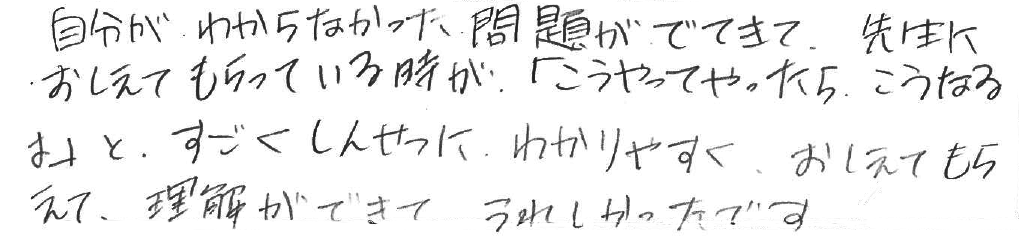 自分が わからなかった 問題が でてきて、先生に
おしえて もらっている時が、「こうやってやったら、こうなる
よ」と、すごく しんせつに、わかりやすく、おしえてもら
えて、理解ができて うれしかったです